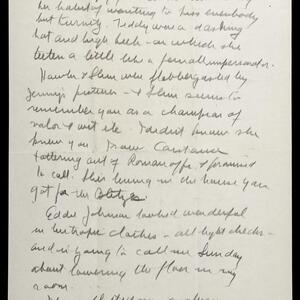 her habit of wanting to kiss everybody
but Turnity. Teddy wore a dashing
hat and high heels - on which she
teeters a little like a female impersonator.
Hawks & Slim were flabbergasted by
Jenny's picture - & Slim seems to
remember you as a champion of
valor & wit etc. I didn't know she
knew you. I saw Constance
tottering out of Romanoffs & promised
to call. She's living in the house you
got for the
Eddie Johnson looked wonderful
in his tropic clothes - all light checks -
and is going to call me Sunday
about lowering the floor in my
room.